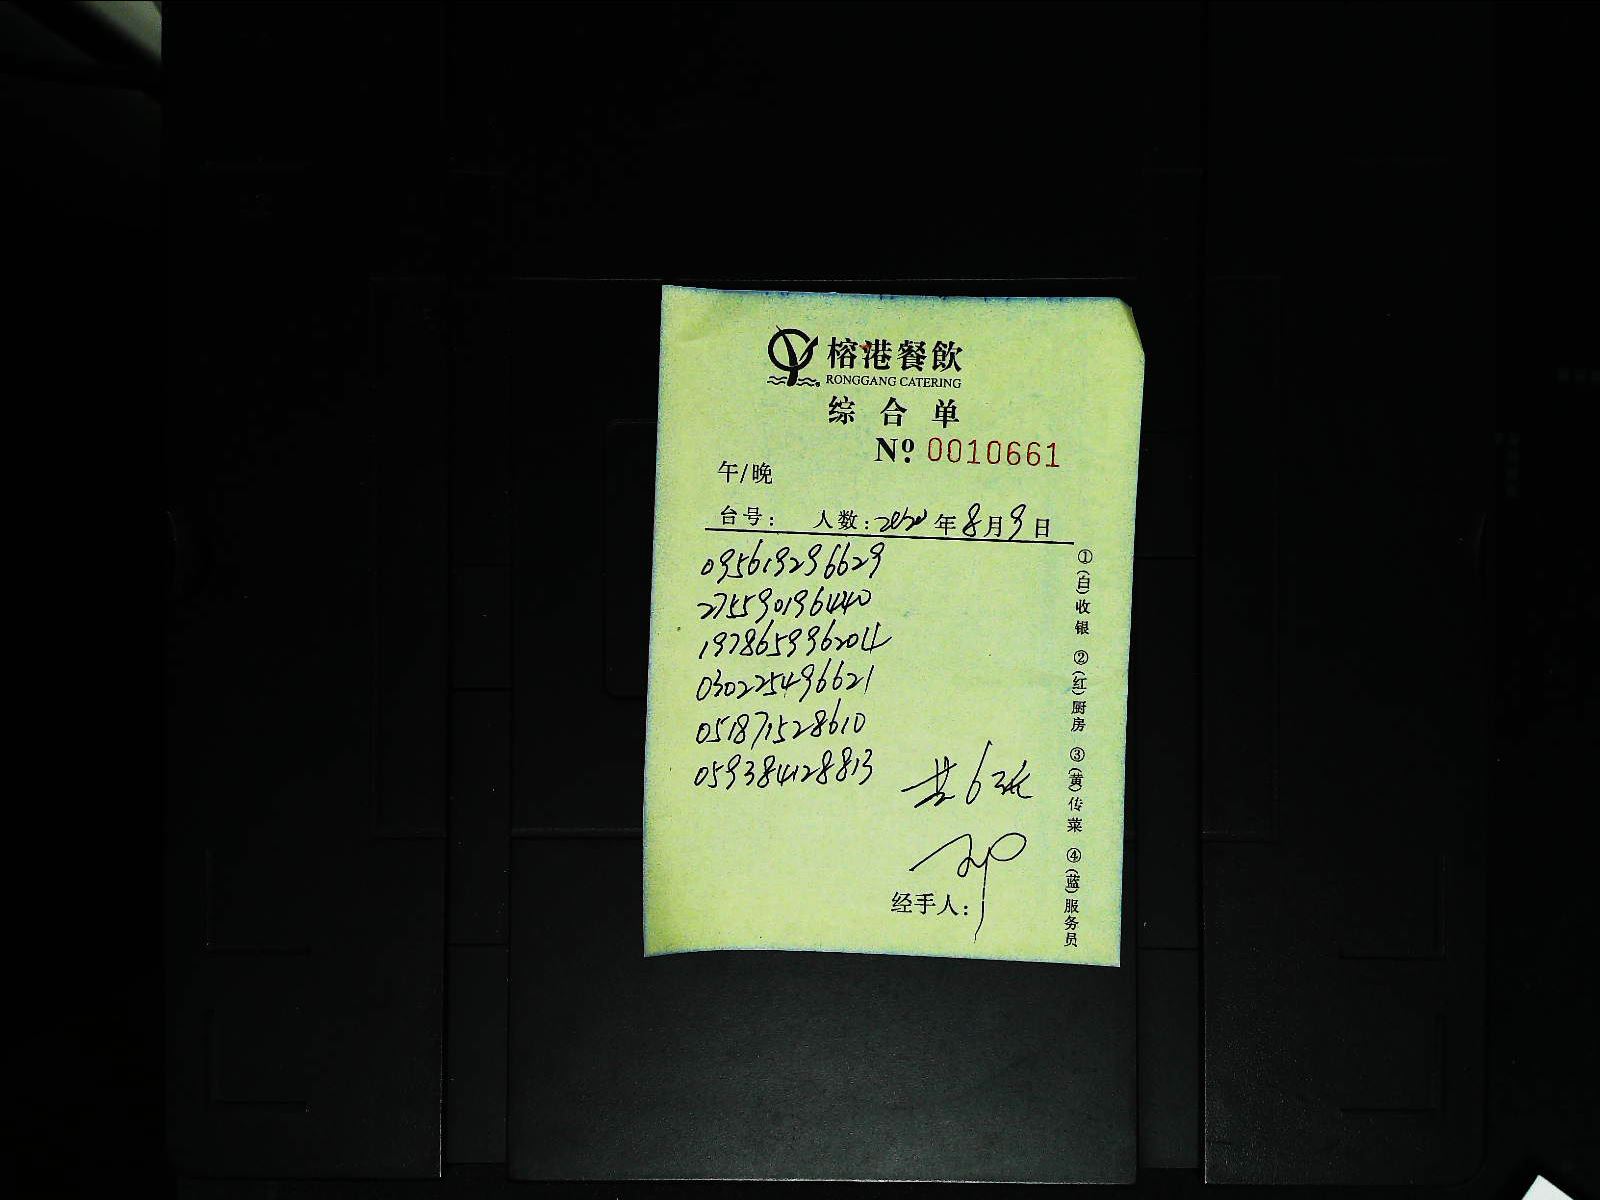 榕港餐飲
RONGGANG CATERING
综合单
Nº 0010661
午/晚
台号： 人数：2020年8月9日
095619296629
275590196440
197865996204
030225496621
051871528610
059384128813
共6张
经手人：
①(白)收银 ②(红)厨房 ③(黄)传菜 ④(蓝)服务员